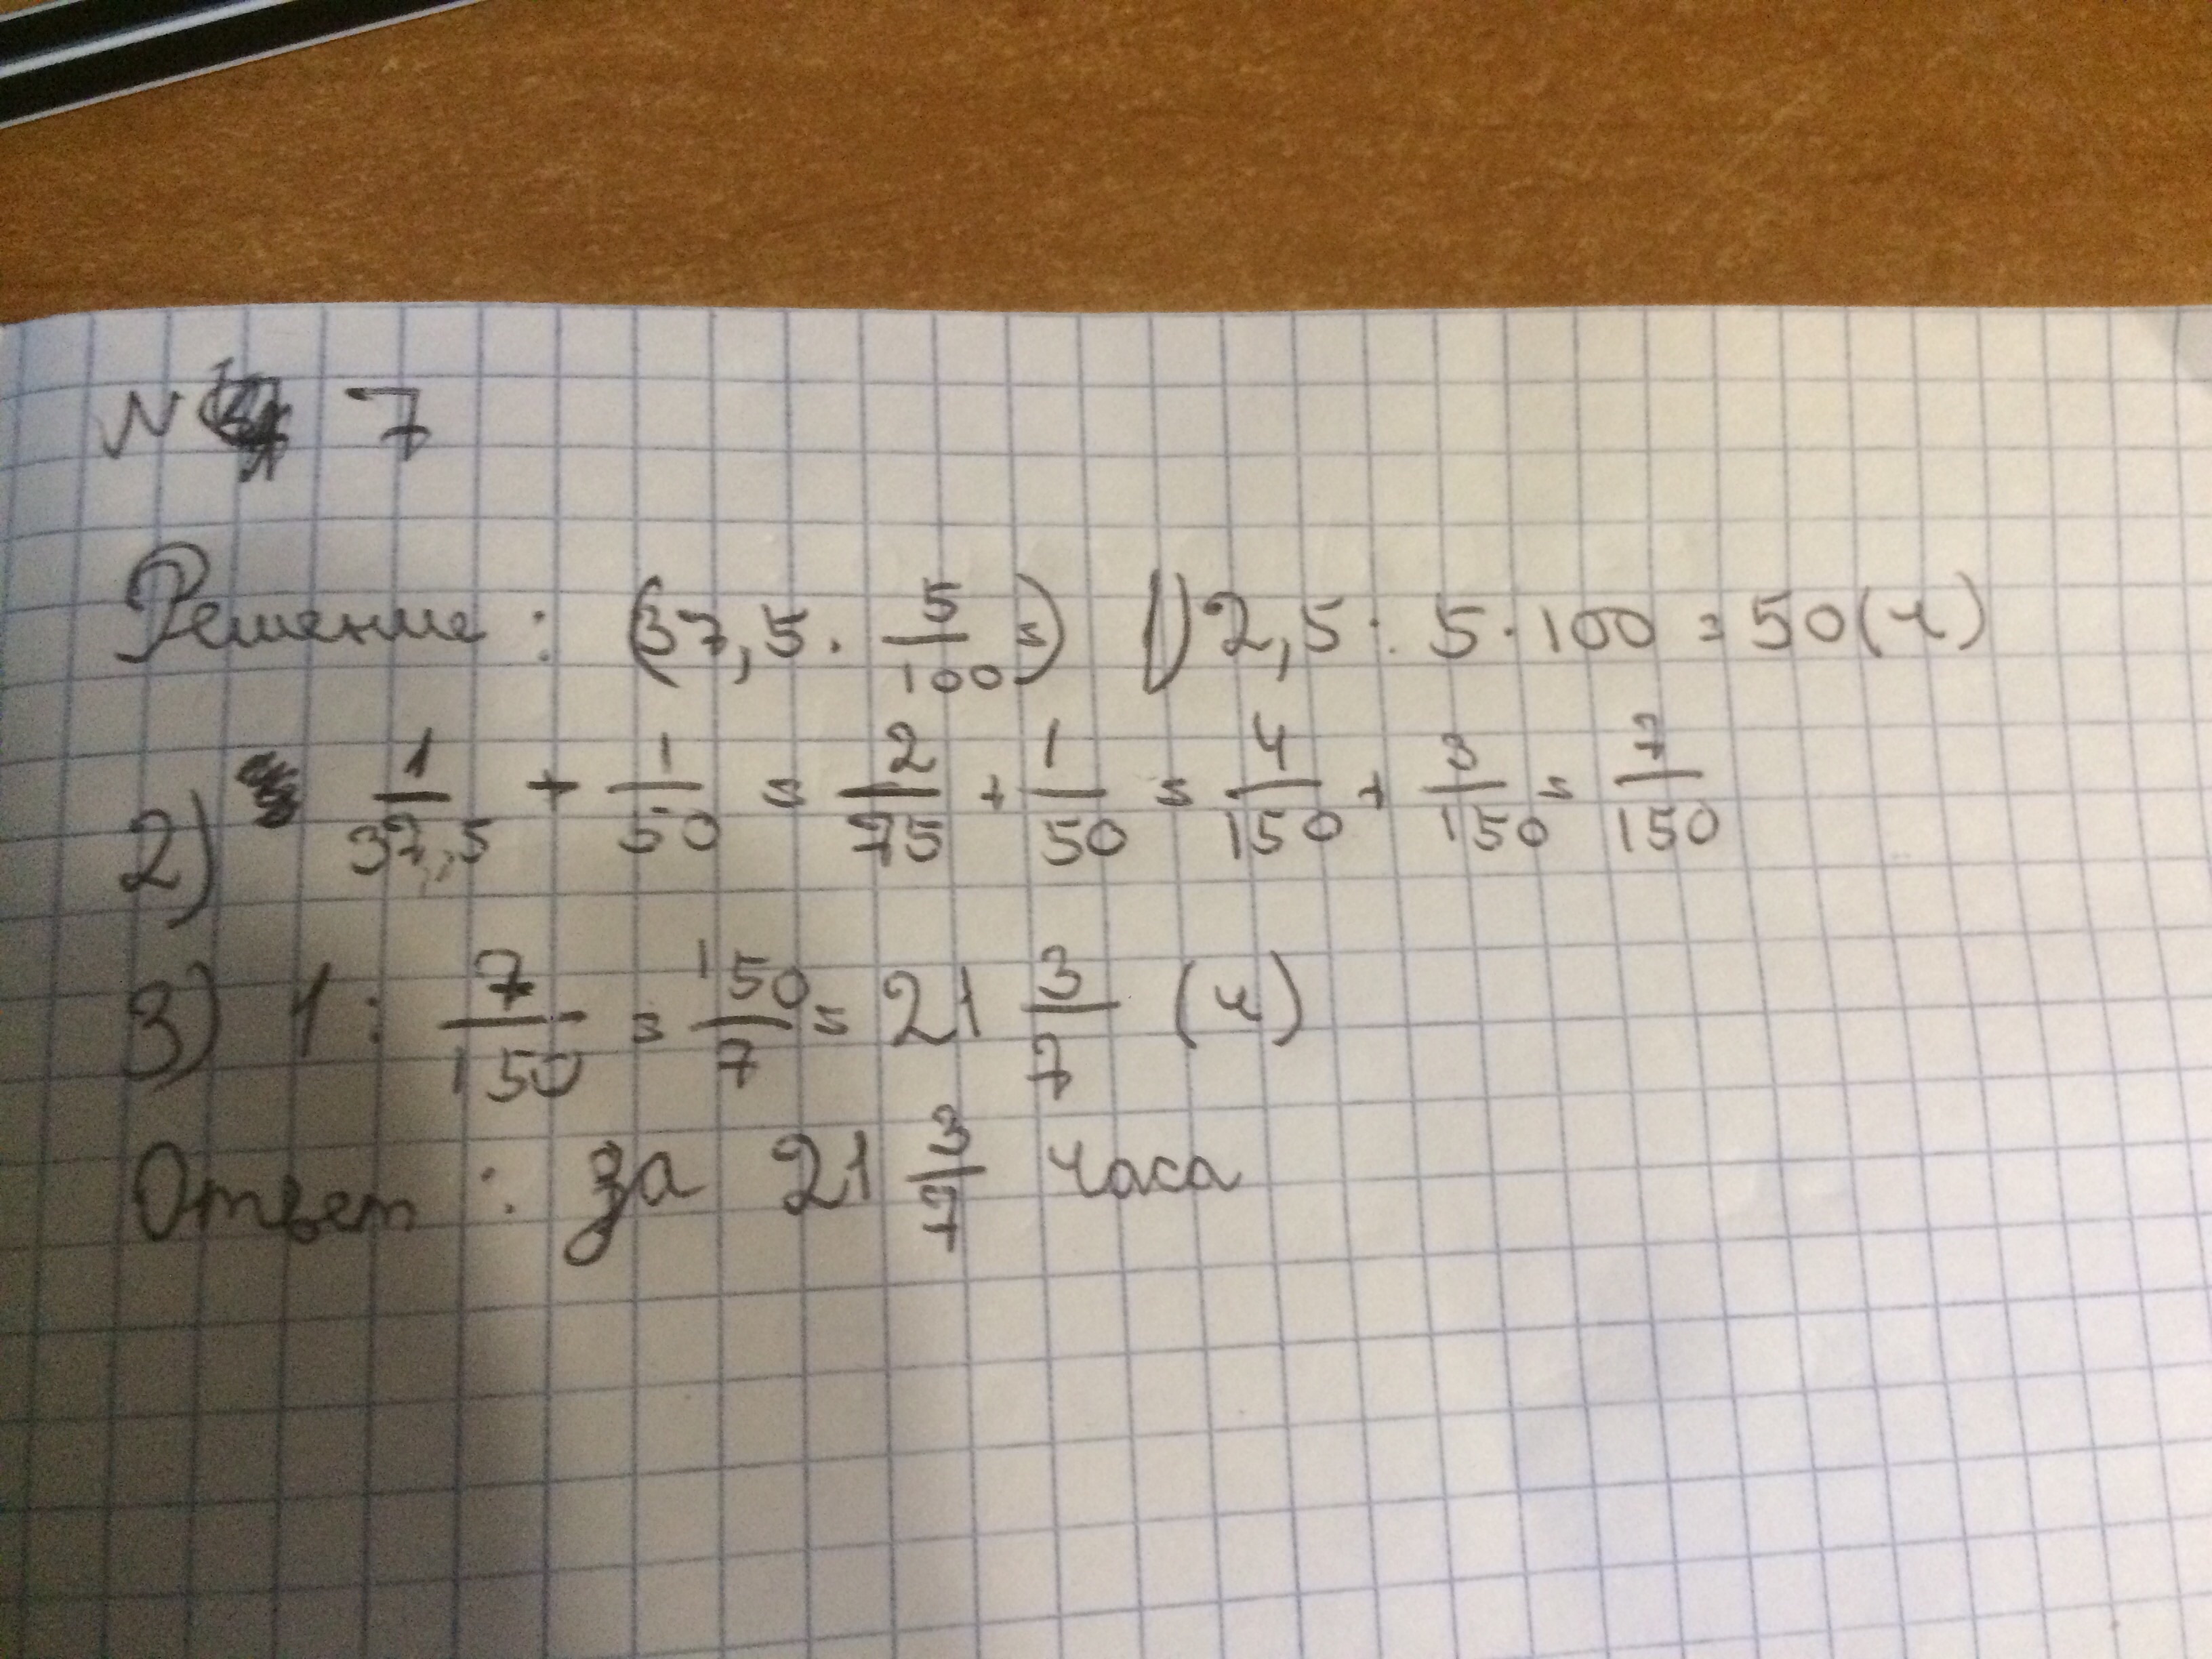 N 7
Решение: (37,5 · 5/100 =) 1) 2,5 : 5 · 100 = 50 (ч)
2) 1/37,5 + 1/50 = 2/75 + 1/50 = 4/150 + 3/150 = 7/150
3) 1 : 7/150 = 150/7 = 21 3/7 (ч)
Ответ : за 21 3/7 часа